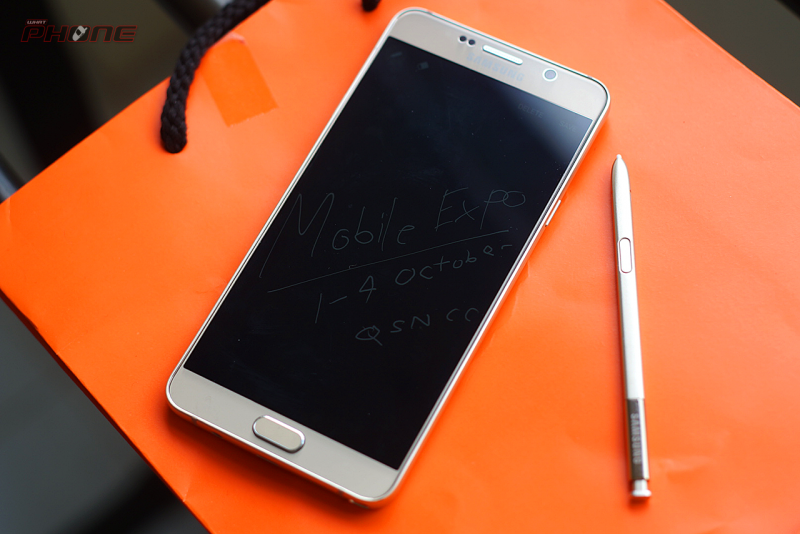 WHAT
PHONE
SAMSUNG
Mobile Expo
1-4 October
QSNCC
SAMSUNG